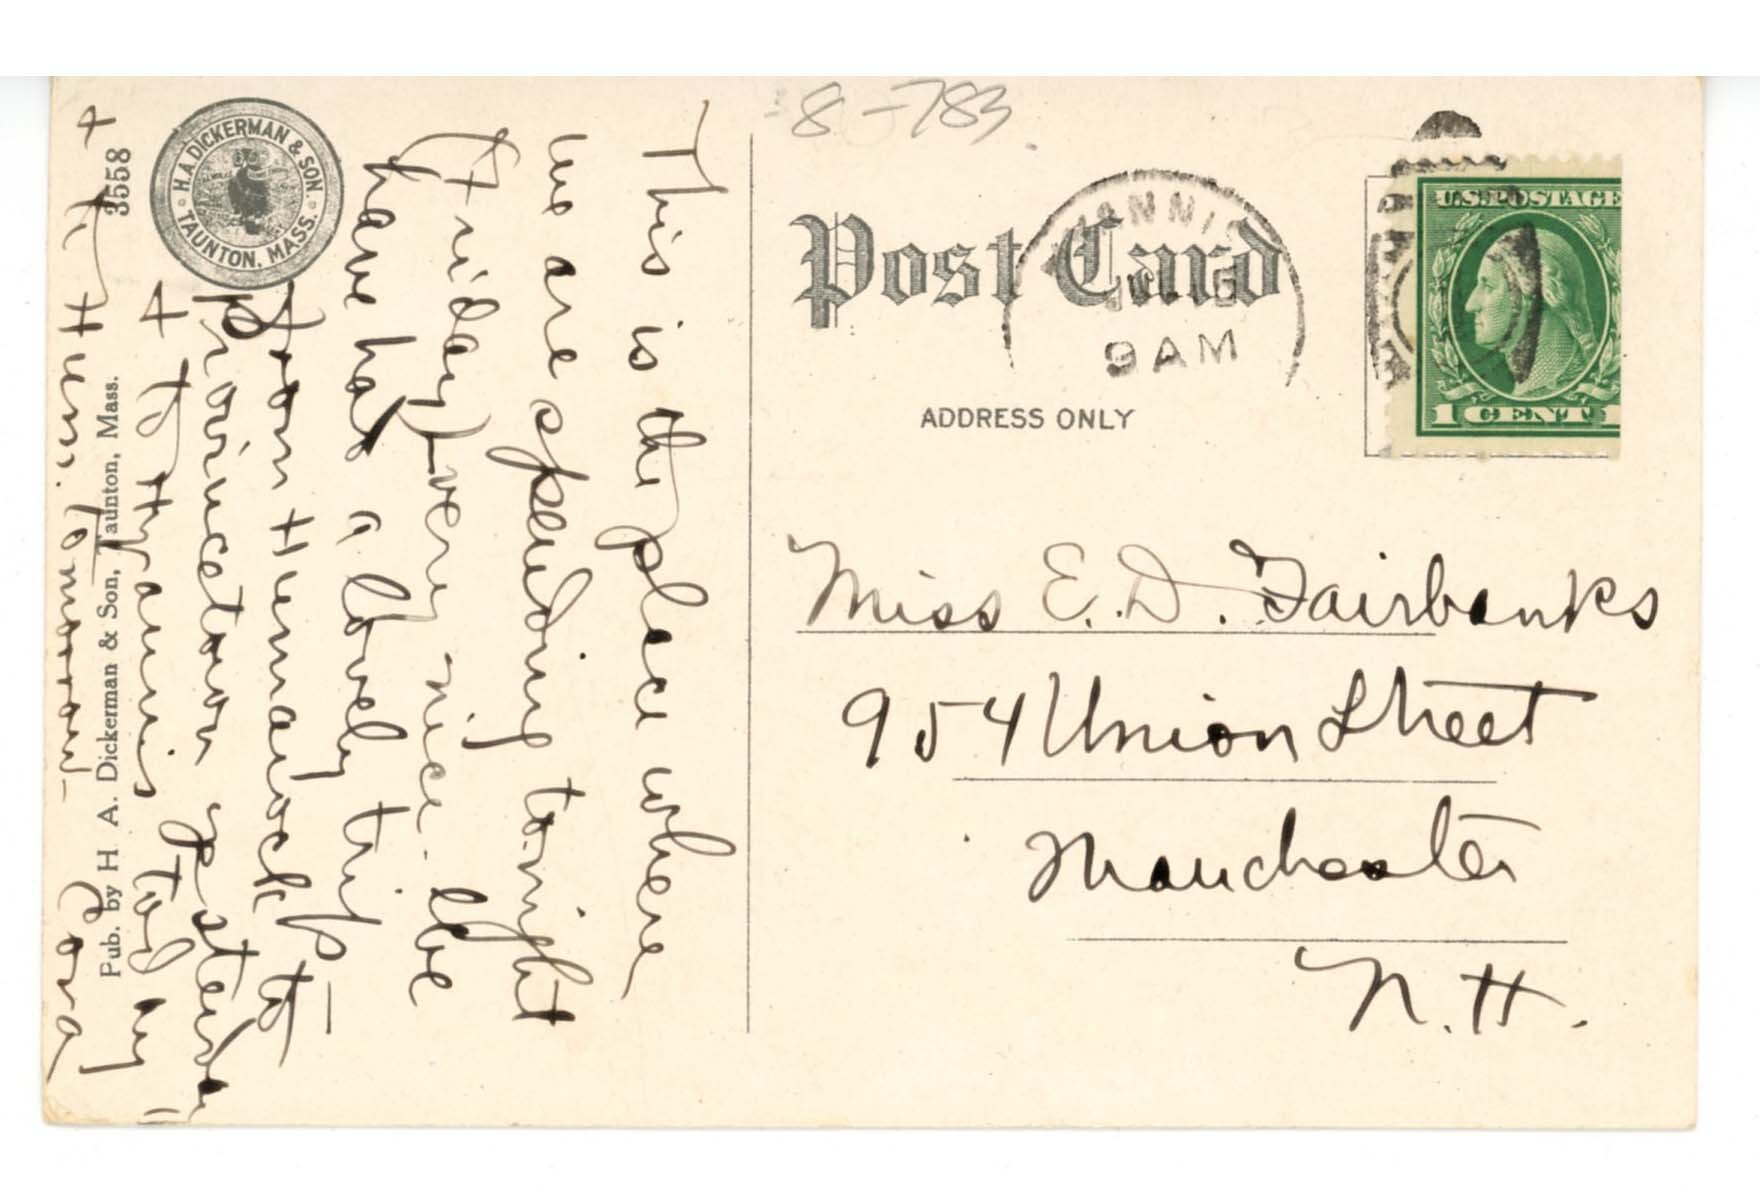 8-783
Post Card
HYANNIS
9 AM
U.S. POSTAGE
1 CENT 1
ADDRESS ONLY
Miss E. D. Fairbanks
954 Union Street
Manchester
N. H.
This is the place where
we are spending tonight
(Friday) very nice. We
have had a lovely trip –
from Humarock to
Provincetown yesterday
+ to Hyannis today
+ to Hum. tomorrow – Cora
H. A. DICKERMAN & SON.
TAUNTON, MASS.
3558
Pub. by H. A. Dickerman & Son, Taunton, Mass.